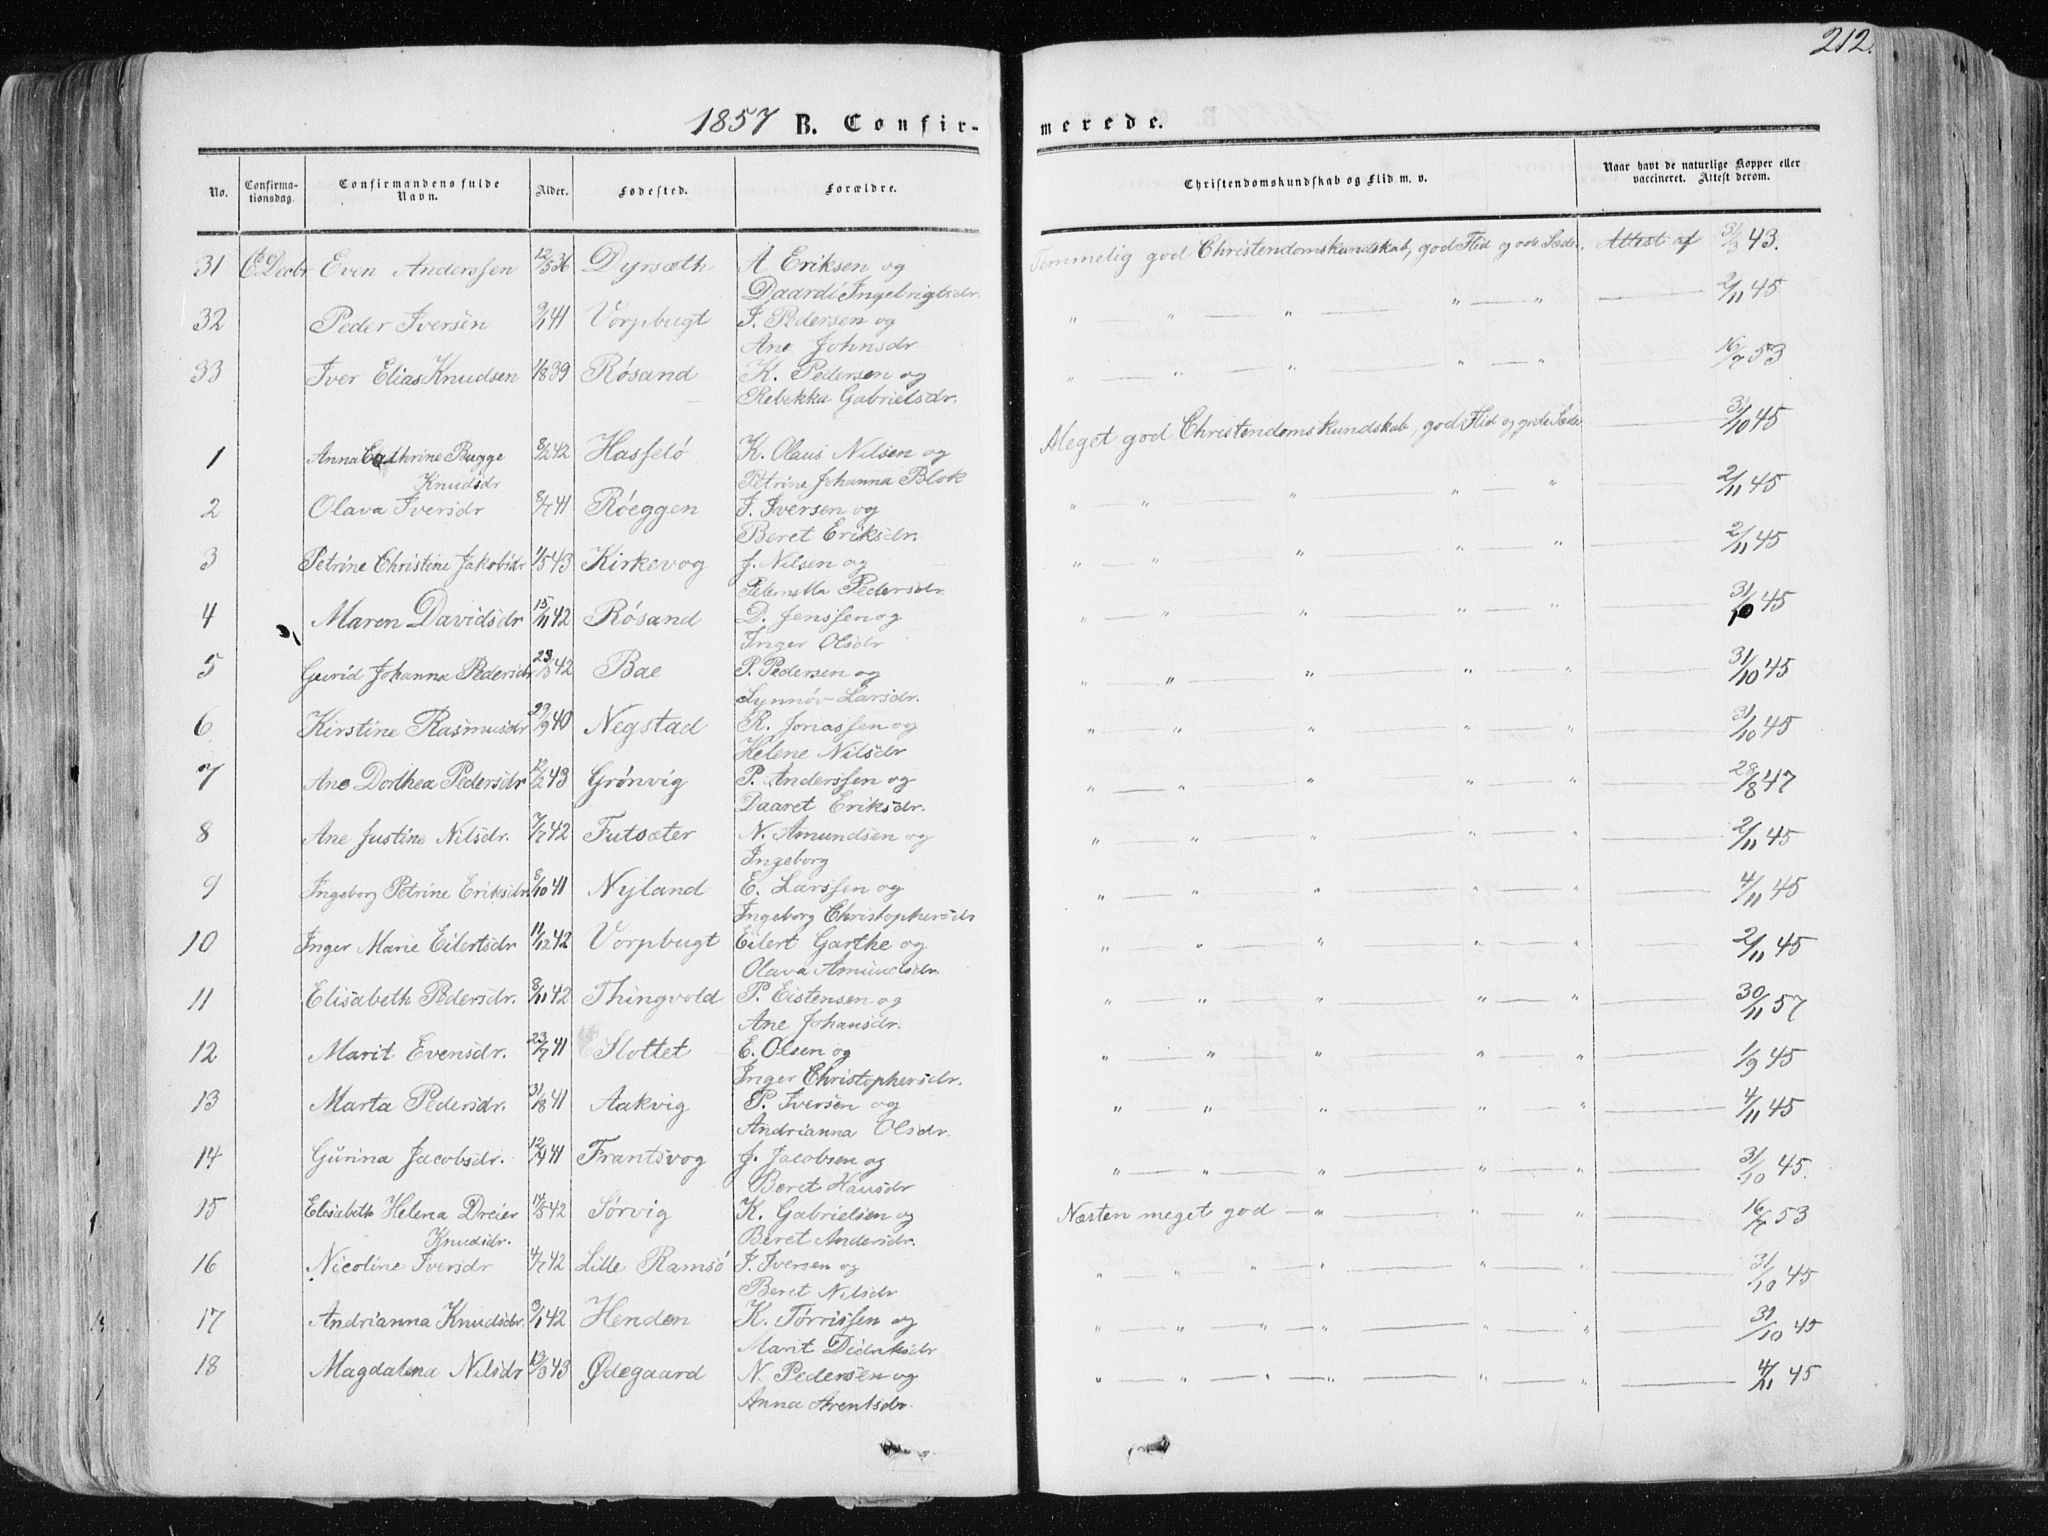 212.
1857 B. Confir- merede.
No. Confirma-tionsdag. Confirmandens fulde Navn. Alder. Fødested. Forældre. Christendomskundskab og Flid m. v. Naar havt de naturlige Kopper eller vaccineret. Attest derom.
31 6 Decbr Even Anderssen 12/5 36 Dyrsæth A Eriksen og Temmelig god Christendomskundskab, god Flid og gode Sæder. Attest af 31/3 43.
Daardi Ingebrigtsdr.
32 Peder Iversen 9/1 41 Vorpbugt I. Pedersen og " — " — " — " — " — 2/11 45
Ane Johnsdr
33 Iver Elias Knudsen 1/8 39 Røsand K. Pedersen og " — " — " — " — " — 16/7 53
Rebekka Gabrielsdr.
1 Anna Cathrine Bugge 8/2 42 Hasselø K. Olaus Nilsen og Meget god Christendomskundskab, god Flid og gode Sæder — 31/10 45
Knudsdr Petrine Johanna Blok
2 Olava Iversdr 8/7 41 Røeggen I. Iversen og " — " — " — " — " — 2/11 45
Beret Eriksdr.
3 Petrine Christine Jakobsdr 1/5 43 Kirkevog J. Nilsen og " — " — " — " — " — 2/11 45
Peternella Pedersdr.
4 Maren Davidsdr 15/11 42 Røsand D. Jenssen og " — " — " — " — " — 31/10 45
Inger Olsdr
5 Gurid Johanna Pedersdr 23/3 42 Bae P. Pedersen og " — " — " — " — " — 31/10 45
Synnøv Larsdr.
6 Kirstine Rasmusdr 29/9 40 Negstad R. Jonassen og " — " — " — " — " — 31/10 45
Helene Nilsdr
7 Ane Dorthea Pedersdr 12/2 43 Grønvig P. Anderssen og " — " — " — " — " — 28/8 47
Daaret Eriksdr.
8 Ane Justine Nilsdr. 7/7 42 Futsæter N. Amundsen og " — " — " — " — " — 2/11 45
Ingeborg
9 Ingeborg Petrine Eriksdr. 8/10 41 Nyland E. Larssen og " — " — " — " — " — 4/11 45
Ingeborg Christophersdr
10 Inger Marie Eilertsdr 11/12 42 Vorpbugt Eilert Garthe og " — " — " — " — " — 2/11 45
Olava Amundsdr.
11 Elisabeth Pedersdr. 8/11 42 Thingvold P. Eistensen og " — " — " — " — " — 30/11 57
Ane Johansdr.
12 Marit Evensdr. 23/7 41 Slottet E. Olsen og " — " — " — " — " — 1/9 45
Inger Christophersdr.
13 Marta Pedersdr. 31/8 41 Aakvig P. Iversen og " — " — " — " — " — 4/11 45
Andrianna Olsdr.
14 Gurina Jacobsdr. 12/4 41 Frantsvog J. Jacobsen og " — " — " — " — " — 31/10 45.
Beret Hansdr
15 Elisabeth Helena Dreier 14/5 42 Sørvig K. Gabrielsen og Næsten meget god — " — " — " — 16/7 53
Knudsdr. Beret Andersdr.
16 Nicoline Iversdr 4/7 42 Lille Ramsø I. Iversen og " — " " — " — " — " — 31/10 45
Beret Nilsdr
17 Andrianna Knudsdr. 3/1 42 Henden K. Tørrissen og " — " — " — " — " — " — 31/10 45
Marit Didriksdr
18 Magdalena Nilsdr 13/3 43 Ødegaard N. Pedersen og " — " — " — " — " — " — 4/11 45
Anna Arentsdr.